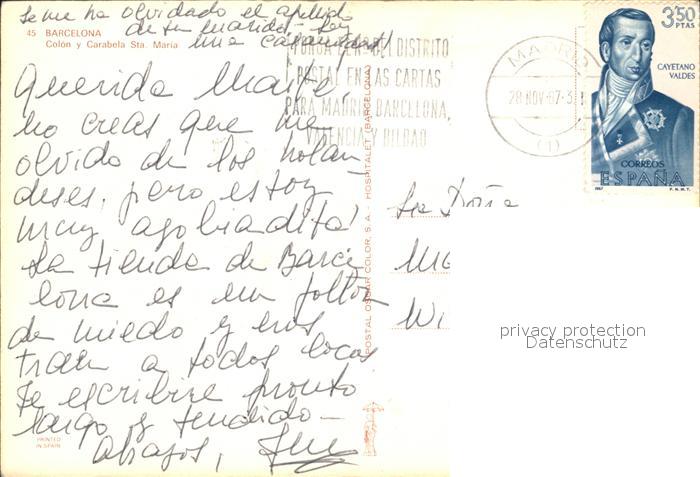 Se me ha olvidado el apellido
de su marido. Soy
una calamidad!
45 BARCELONA
Colón y Carabela Sta. María
Querida Maite,
no creas que me
olvido de los holan-
deses, pero estoy
muy agobiadita!
La tienda de Barce
lona es un follón
de miedo y nos
traen a todos locas
Te escribiré pronto
largo y tendido—
Abrazos,
PRINTED
IN SPAIN
POSTAL OSCAR COLOR, S. A. - HOSPITALET (BARCELONA)
PONGA DISTRITO
POSTAL EN LAS CARTAS
PARA MADRID, BARCELONA,
VALENCIA Y BILBAO
MADRID
28 NOV 67
(1)
3,50
PTAS
CAYETANO
VALDES
CORREOS
ESPAÑA
1967 F.N.M.T.
Sra Doña
privacy protection
Datenschutz